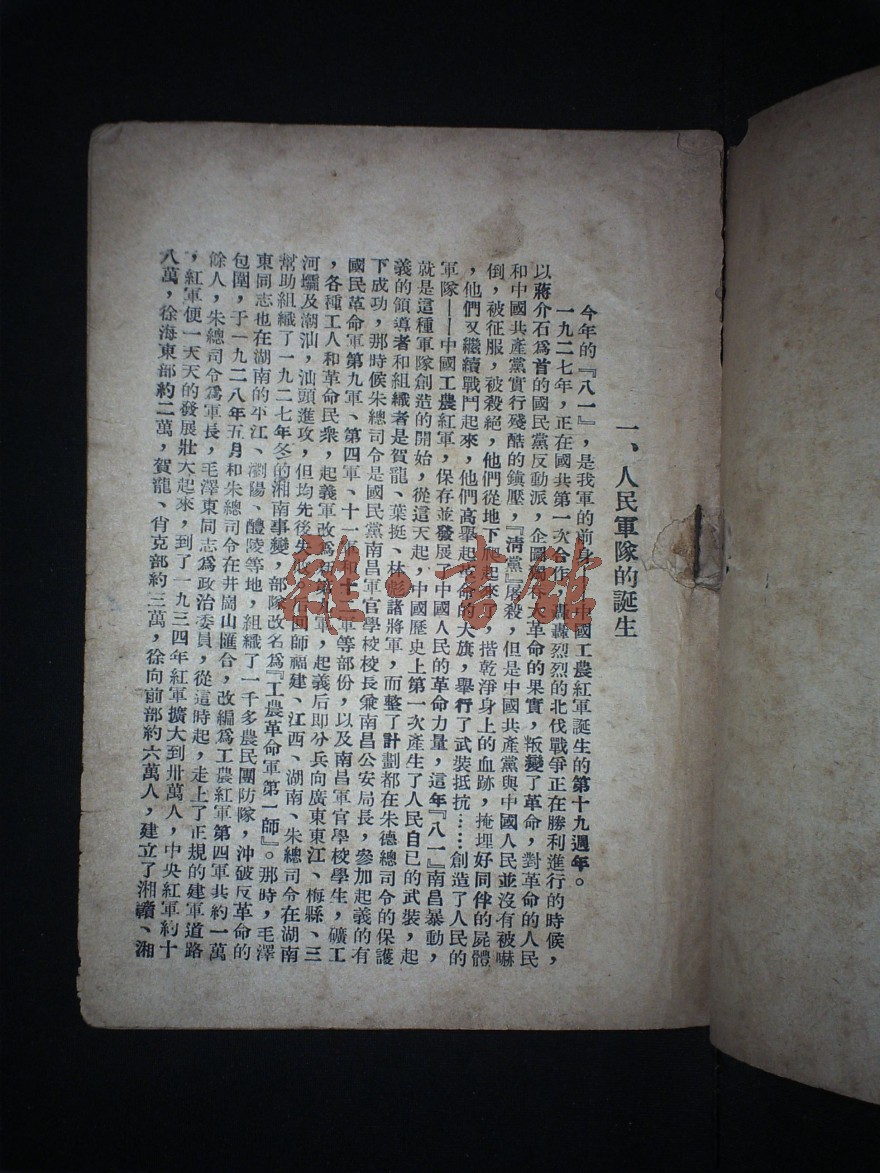 一、人民軍隊的誕生
今年的『八一』，是我軍的前身，中國工農紅軍誕生的第十九週年。
一九二七年，正在國共第一次合作，轟轟烈烈的北伐戰爭正在勝利進行的時候，
以蔣介石爲首的國民黨反動派，企圖獨吞大革命的果實，叛變了革命，對革命的人民
和中國共產黨實行殘酷的鎮壓，『清黨』屠殺，但是中國共產黨與中國人民並沒有被嚇
倒，被征服，被殺絕，他們從地下爬起來了，揩乾淨身上的血跡，掩埋好同伴的屍體
，他們又繼續戰鬥起來，他們高舉起革命的大旗，舉行了武裝抵抗……創造了人民的
軍隊——中國工農紅軍，保存並發展了中國人民的革命力量，這年『八一』南昌暴動，
就是這種軍隊創造的開始，從這天起，中國歷史上第一次產生了人民自已的武裝，起
義的領導者和組織者是賀龍、葉挺、林彪諸將軍，而整了計劃都在朱德總司令的保護
下成功，那時候朱總司令是國民黨南昌軍官學校校長兼南昌公安局長，參加起義的有
國民革命軍第九軍、第四軍、十一軍和十軍等部份，以及南昌軍官學校學生，礦工
，各種工人和革命民衆，起義軍改爲軍，起義后即分兵向廣東東江、梅縣、三
河壩及潮汕，汕頭進攻，但均先後失師福建、江西、湖南、朱總司令在湖南
幫助組織了一九二七年冬的湘南事變，部隊改名爲『工農革命軍第一師』。那時，毛澤
東同志也在湖南的平江、瀏陽、醴陵等地，組織了一千多農民團防隊，沖破反革命的
包圍，于一九二八年五月和朱總司令在井崗山匯合，改編爲工農紅軍第四軍共約一萬
餘人，朱總司令爲軍長，毛澤東同志爲政治委員，從這時起，走上了正規的建軍道路
，紅軍便一天天的發展壯大起來，到了一九三四年紅軍擴大到卅萬人，中央紅軍約十
八萬，徐海東部約二萬，賀龍、肖克部約三萬，徐向前部約六萬人，建立了湘贛、湘
雜·書館